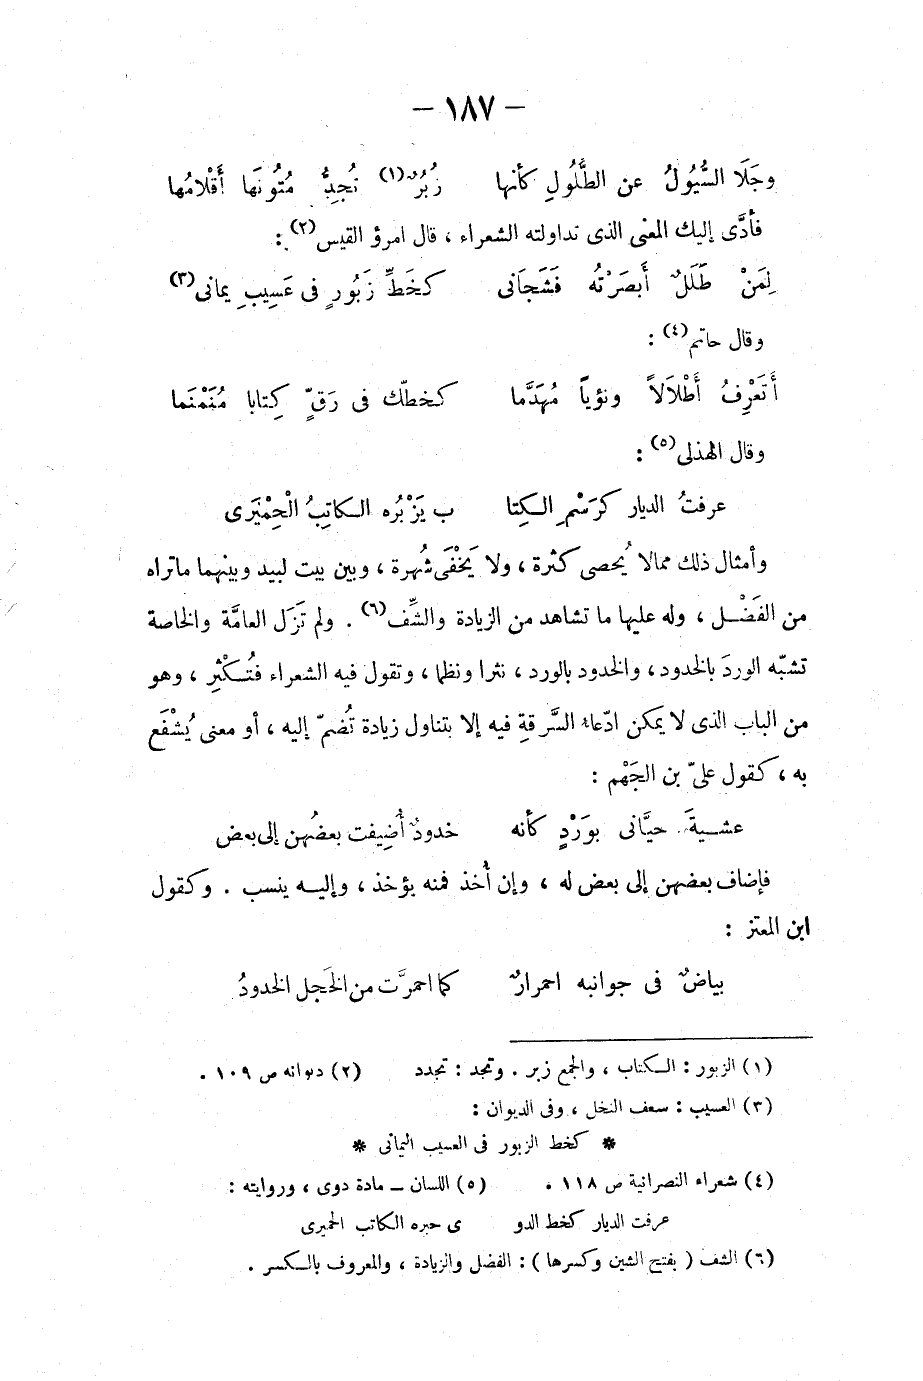 — ١٨٧ —
وجَلَا السُّيُولُ عن الطُّلُولِ كأنها زُبُرٌ (١) تُجِدُّ مُتُونَها أَقْلامُها
فأدَّى إليك المعنى الذى تداولته الشعراء ، قال امرؤ القيس (٢) :
لِمَنْ طَلَلٌ أَبصَرْتُه فَشَجَانى كخَطِّ زَبُورٍ فى عَسِيبِ يمانى (٣)
وقال حاتم (٤) :
أَتَعْرِفُ أَطْلَالاً ونؤياً مُهَدَّما كخطّك فى رَقٍّ كِتابا مُنَمْنَما
وقال الهذلى (٥) :
عرفتُ الديار كرَسْمِ الكِتا ب يَزْبُره الكاتِبُ الْحِمْيَرى
وأمثال ذلك ممالا يُحصى كثرة ، ولا يَخْفَى شُهرة ، وبين بيت لبيد وبينهما ماتراه
من الفَضْل ، وله عليها ما تشاهد من الزيادة والشِّف (٦) . ولم تَزَل العامَّة والخاصة
تشبّه الوردَ بالخدود ، والخدود بالورد ، نثرا ونظما ، وتقول فيه الشعراء فتُكْثِر ، وهو
من الباب الذى لا يمكن ادّعاء السَّرقةِ فيه إلا بتناول زيادة تُضمّ إليه ، أو معنى يُشْفَع
به ، كقول علىّ بن الجَهْم :
عشيةَ حيَّانى بوَرْدٍ كأنه خدودٌ أُضِيفت بعضُهن إلى بعض
فإضاف بعضهن إلى بعض له ، وإن أُخذ فمنه يؤخذ ، وإليه ينسب . وكقول
ابن المعتز :
بياضٌ فى جوانبه احمرارٌ كما احمرَّت من الخَجل الخدودُ
(١) الزبور : الكتاب ، والجمع زبر . وتجد : تجدد (٢) ديوانه ص ١٠٩ .
(٣) العسيب : سعف النخل ، وفى الديوان :
* كخط الزبور فى العسيب اليمانى *
(٤) شعراء النصرانية ص ١١٨ . (٥) اللسان — مادة دوى ، وروايته :
عرفت الديار كخط الدو ى حبره الكاتب الحميرى
(٦) الشف ( بفتح الشين وكسرها ) : الفضل والزيادة ، والمعروف بالكسر .